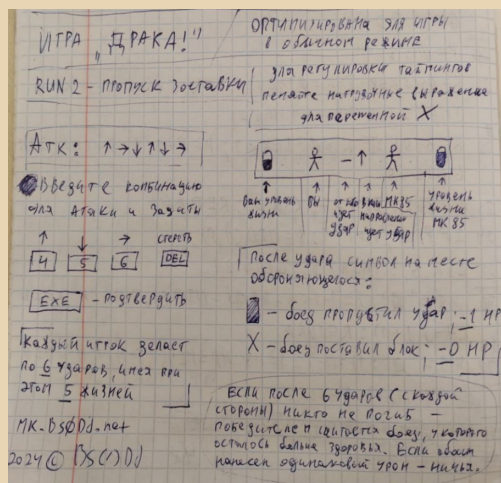 ИГРА "ДРАКА!"
RUN 2 - ПРОПУСК ЗАСТАВКИ
АТК: ↑ → ↓ ↑ ↓ →
Введите комбинацию
для Атаки и Защиты
↑ ↓ → стереть
4 5 6 DEL
EXE - подтвердить
Каждый игрок делает
по 6 ударов, имея при
этом 5 жизней
MK.BSØDd.net
2024 ©
ОПТИМИЗИРОВАНА ДЛЯ ИГРЫ
в обычном режиме
для регулировки таймингов
меняйте нагрузочные выражение
для переменной X
- ↑
Ваш уровень
жизни
Вы
удар
МК85
идет удар
уровень
жизни
МК 85
После удара символ на месте
обороняющегося:
- боец пропустил удар; -1 HP
X - боец поставил блок; -0 HP
Если после 6 ударов (с каждой
стороны) никто не погиб -
победителем считается боец, у которого
осталось больше здоровья. Если обоим
нанесен одинаковый урон - ничья.